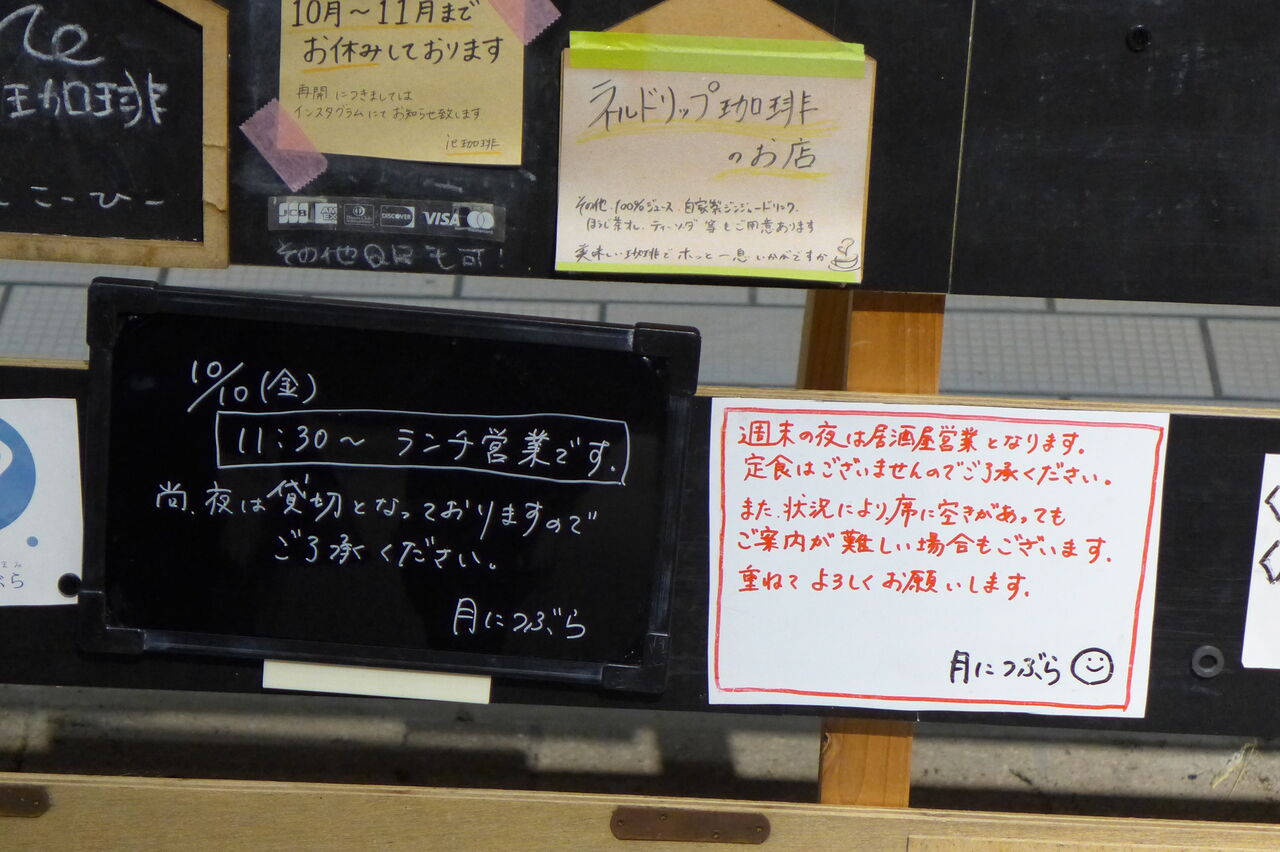 珈琲
こーひー
10月〜11月まで
お休みしております
再開につきましては
インスタグラムにてお知らせ致します
ie珈琲
JCB AMEX DISCOVER VISA
その他QRも可!
ネルドリップ珈琲
のお店
その他、100%ジュース、自家製ジンジャードリンク、
ほうじ茶オレ、ティーソーダ等もご用意あります
美味しい珈琲でホッと一息いかがですか
10/10(金)
11:30〜 ランチ営業です。
尚、夜は貸切となっておりますので
ご了承ください。
月につぶら
週末の夜は居酒屋営業となります。
定食はございませんのでご了承ください。
また、状況により、席に空きがあっても
ご案内が難しい場合もございます。
重ねてよろしくお願いします。
月につぶら